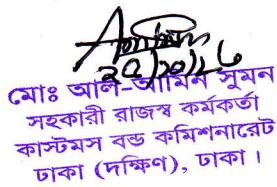 ২০/১০/২৬
মোঃ আল-আমিন সুমন
সহকারী রাজস্ব কর্মকর্তা
কাস্টমস বন্ড কমিশনারেট
ঢাকা (দক্ষিণ), ঢাকা।